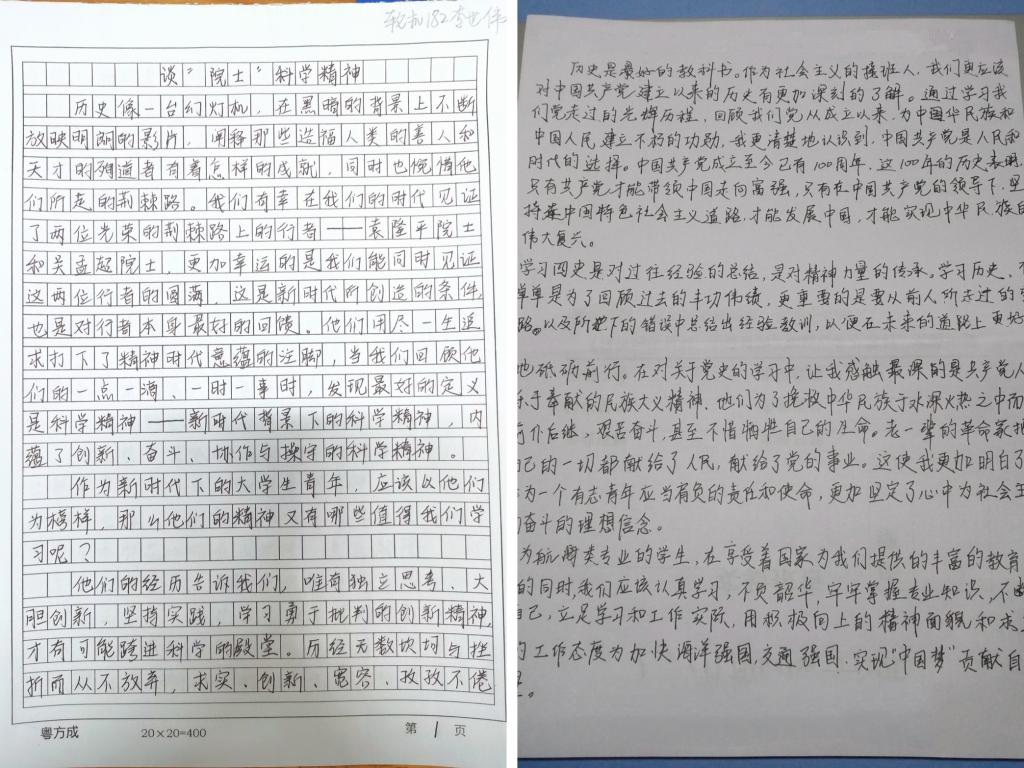 轮机182李世伟
谈“院士”科学精神
历史像一台幻灯机，在黑暗的背景上不断
放映明丽的影片，阐释那些造福人类的善人和
天才的殉道者有着怎样的成就，同时也惋惜他
们所走的荆棘路。我们有幸在我们的时代见证
了两位光荣的荆棘路上的行者——袁隆平院士
和吴孟超院士，更加幸运的是我们能同时见证
这两位行者的圆满，这是新时代所创造的条件，
也是对行者本身最好的回馈。他们用尽一生追
求打下了精神时代意蕴的注脚，当我们回顾他
们的一点一滴、一时一事时，发现最好的定义
是科学精神——新时代背景下的科学精神，内
蕴了创新、奋斗、协作与操守的科学精神。
作为新时代下的大学生青年，应该以他们
为榜样，那么他们的精神又有哪些值得我们学
习呢？
他们的经历告诉我们，唯有独立思考、大
胆创新，坚持实践，学习勇于批判的创新精神，
才有可能跨进科学的殿堂。历经无数坎坷与挫
折而从不放弃，求实、创新、宽容、孜孜不倦
粤方成
20×20=400
第1页
历史是最好的教科书。作为社会主义的接班人，我们更应该
对中国共产党建立以来的历史有更加深刻的了解。通过学习我
们党走过的光辉历程，回顾我们党从成立以来，为中国民族和
中国人民建立不朽的功勋，我更清楚地认识到，中国共产党是人民和
时代的选择。中国共产党成立至今已有100周年，这100年的历史表明
只有共产党才能带领中国走向富强，只有在中国共产党的领导下，坚
持走中国特色社会主义道路，才能发展中国，才能实现中华民族的
伟大复兴。
学习四史是对过往经验的总结，是对精神力量的传承。学习历史，不
单单是为了回顾过去的丰功伟绩，更重要的是要从前人所走过的
路。以及所犯下的错误中总结出经验教训，以便在未来的道路上更好
地砥砺前行。在对关于党史的学习中，让我感触最深的是共产党人
乐于奉献的民族大义精神，他们为了挽救中华民族于水深火热之中而
前仆后继，艰苦奋斗，甚至不惜牺牲自己的生命。老一辈的革命家把
自己的一切都献给了人民，献给了党的事业。这使我更加明白了
作为一个有志青年应当有负的责任和使命，更加坚定了心中为社会主
奋斗的理想信念。
为航海类专业的学生，在享受着国家为我们提供的丰富的教育
的同时，我们应该认真学习，不负韶华，牢牢掌握专业知识，不断
自己，立足学习和工作实际，用积极向上的精神面貌和求
的工作态度为加快海洋强国，交通强国，实现“中国梦”贡献自